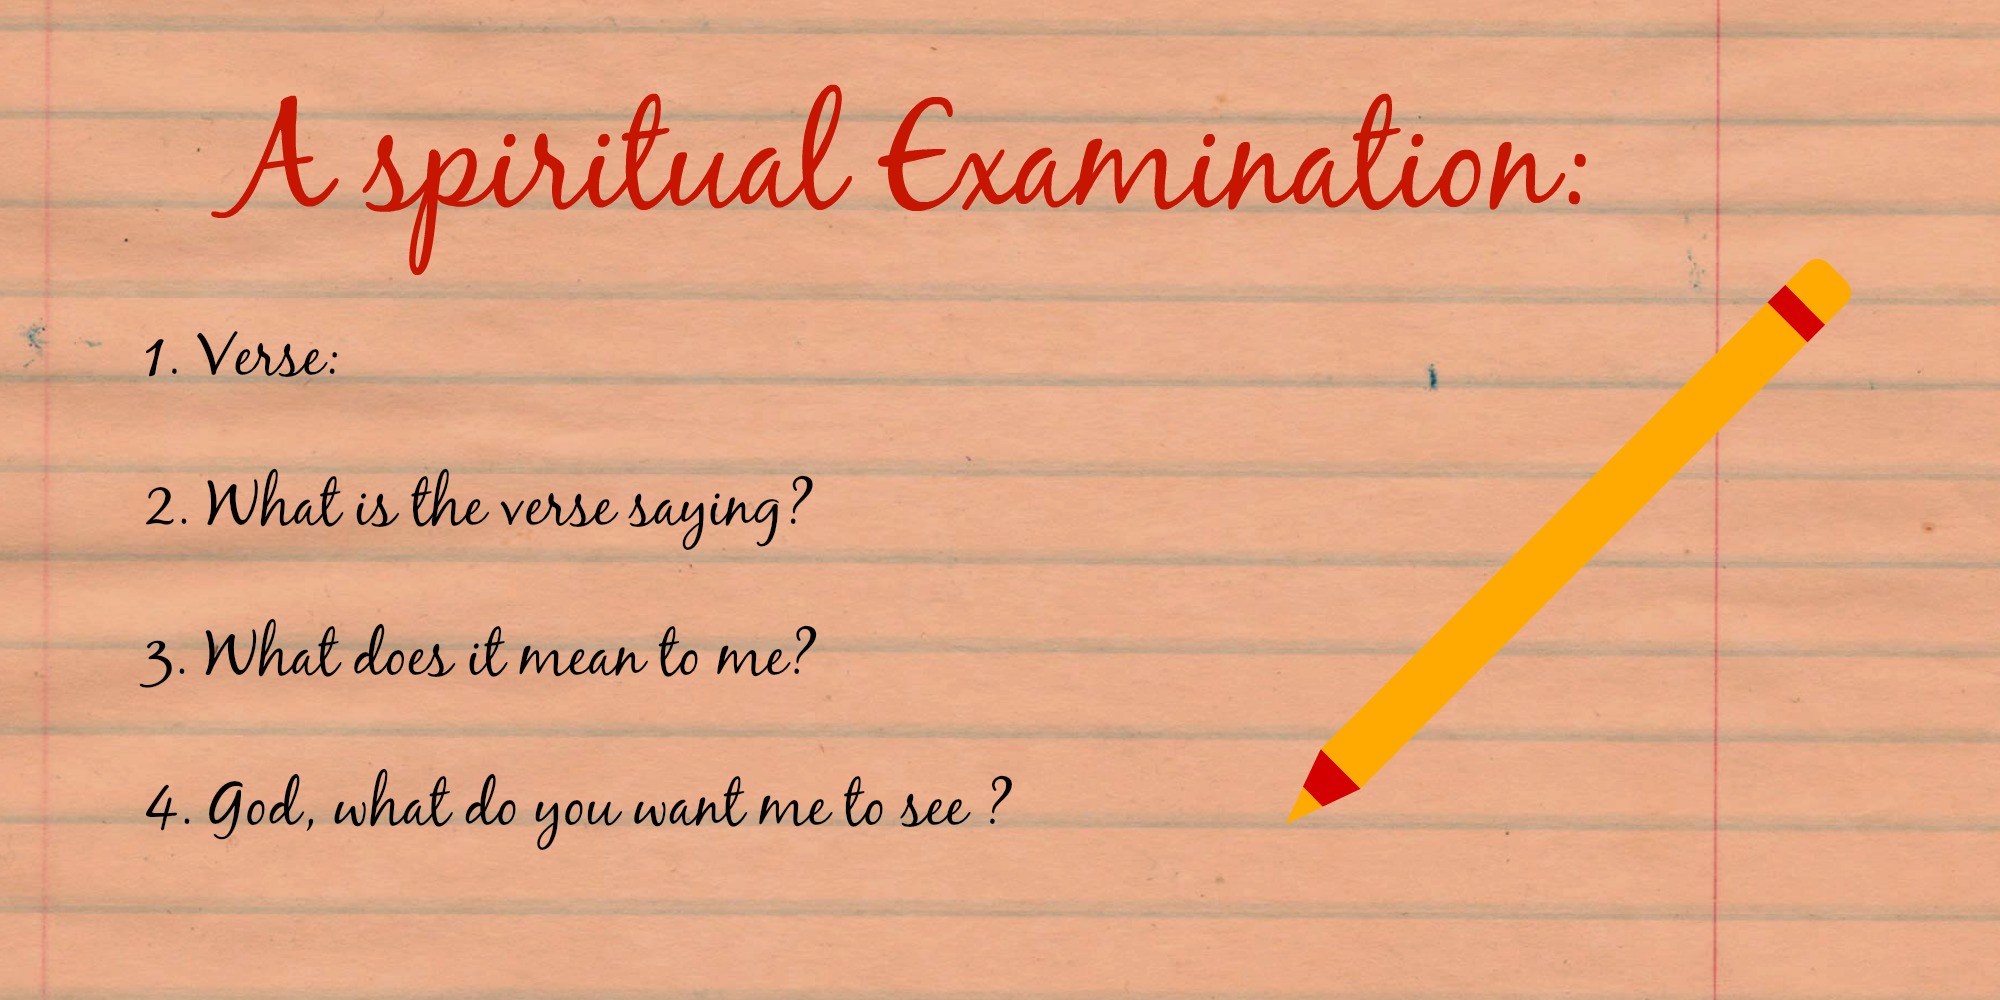 A spiritual Examination:
1. Verse:
2. What is the verse saying?
3. What does it mean to me?
4. God, what do you want me to see ?